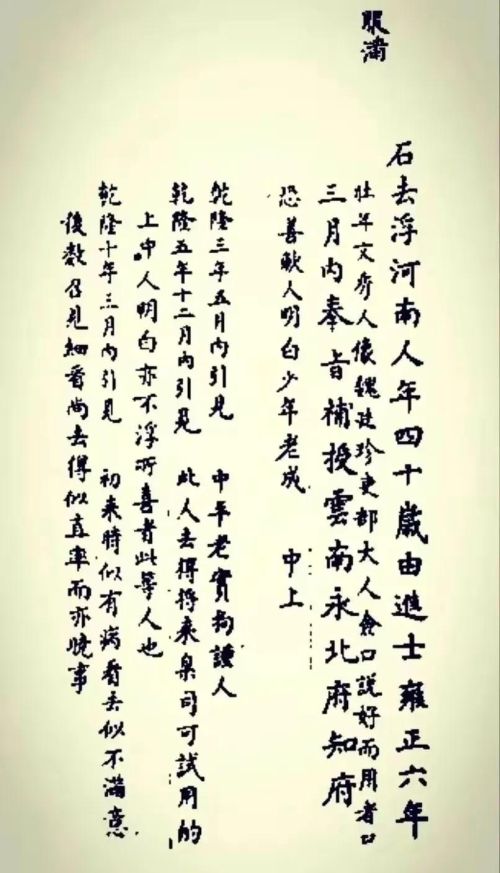 服滿
石去浮河南人年四十歲由進士雍正六年
壮年文秀人像魏廷珍吏部大人僉口説好而用者
三月内奉旨補授雲南永北府知府
恐善人明白少年老成 中上
乾隆三年五月内引見 中年老實拘謹人
乾隆五年十二月内引見 此人去得将来臬司可試用的
上中人明白亦不浮所喜者此等人也
乾隆十年三月内引見 初来時似有病看去似不滿意
後数召見細看尚去得似直率而亦曉事